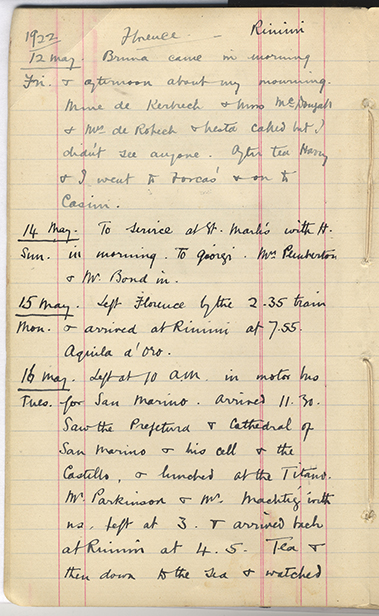 1922 Florence. Rimini
12 May. Bruna came in morning
Fri. & afternoon about my mourning.
Mme de Kerbech & Mrs McDougall
& Mrs de Robeck & Hesta called but I
didn't see anyone. After tea Harry
& I went to Forcas' & on to
Casini.
14 May. To Service at St. Mark's with H.
Sun. in morning. To Giorgi. Mrs Pemberton
& Mr. Bond in.
15 May. Left Florence by the 2.35 train
Mon. & arrived at Rimini at 7.55.
Aquila d'Oro.
16 May. Left at 10 A.M. in motor bus
Tues. for San Marino. Arrived 11.30.
Saw the Prefetura & Cathedral of
San Marino & his cell & the
Castello, & lunched at the Titano.
Mr. Parkinson & Mr. with
us. Left at 3. & arrived back
at Rimini at 4.5. Tea &
then down to the sea & watched